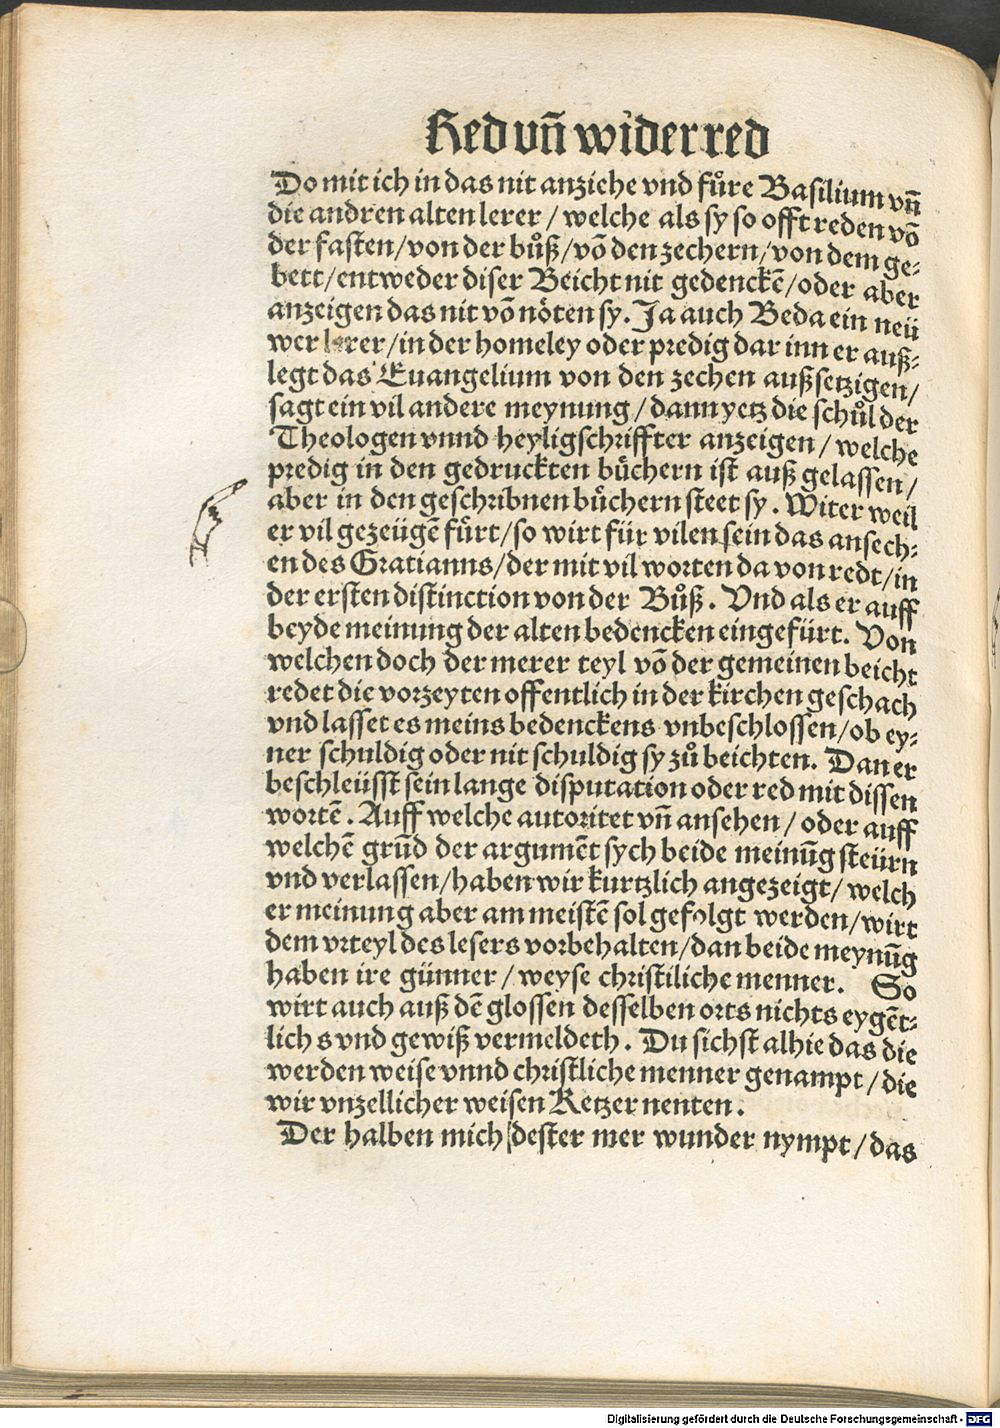 Red vñ widerred
Do mit ich in das nit anziehe vnd fůre Basilium vñ
die andren alten lerer / welche als sy so offt reden võ
der fasten/von der bůß/võ den zechern/von dem ge⸗
bett/entweder diser Beicht nit gedenckẽ/oder aber
anzeigen das nit võ nöten sy. Ja auch Beda ein neü
wer lerer/in der homeley oder predig dar inn er auß⸗
legt das Euangelium von den zechen außsetzigen/
sagt ein vil andere meynung/dann yetz die schůl der
Theologen vnnd heyligschriffter anzeigen/welche
predig in den gedruckten bůchern ist auß gelassen/
aber in den geschribnen bůchern steet sy. Witer weil
er vil gezeügẽ fůrt/so wirt für vilen sein das ansech⸗
en des Gratianns/der mit vil worten da von redt/in
der ersten distinction von der Bůß. Vnd als er auff
beyde meinung der alten bedencken eingefürt. Von
welchen doch der merer teyl võ der gemeinen beicht
redet die vorzeyten offentlich in der kirchen geschach
vnd lasset es meins bedenckens vnbeschlossen/ob ey⸗
ner schuldig oder nit schuldig sy zů beichten. Dan er
beschleüsst sein lange disputation oder red mit dissen
wortẽ. Auff welche autoritet vñ ansehen/oder auff
welchẽ grũd der argumẽt sych beide meinũg steürn
vnd verlassen/haben wir kurtzlich angezeigt/welch
er meinung aber am meistẽ sol gefolgt werden/wirt
dem vrteyl des lesers vorbehalten/dan beide meynũg
haben ire günner/weyse christiliche menner. So
wirt auch auß dẽ glossen desselben orts nichts eygẽt⸗
lichs vnd gewiß vermeldeth. Du sichst alhie das die
werden weise vnnd christliche menner genampt/die
wir vnzellicher weisen Ketzer nenten.
Der halben mich dester mer wunder nympt/das
Digitalisierung gefördert durch die Deutsche Forschungsgemeinschaft - DFG